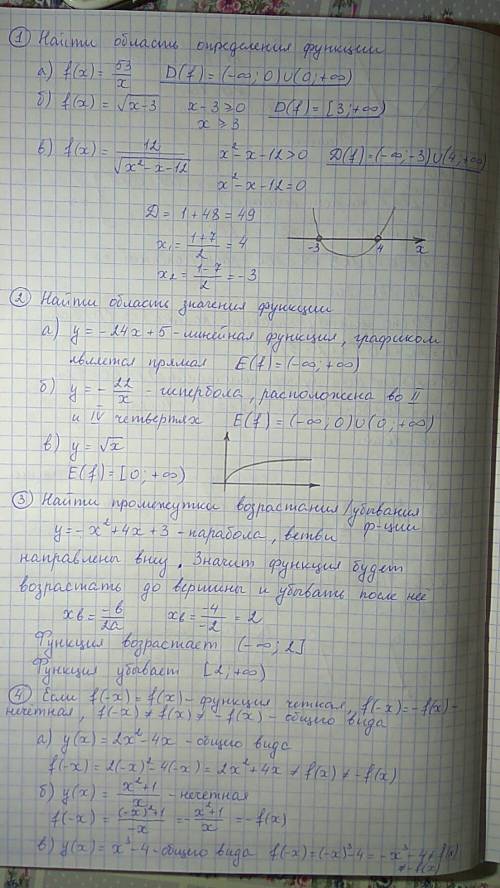 ① Найти область определения функции
а) f(x) = 53/x D(f) = (-∞; 0)∪(0; +∞)
б) f(x) = √(x-3) x-3≥0 D(f) = [3; +∞)
x ≥ 3
в) f(x) = 12/√(x²-x-12) x²-x-12>0 D(f) = (-∞; -3)∪(4; +∞)
x²-x-12=0
D = 1+48 = 49
x₁ = (1+7)/2 = 4
x₂ = (1-7)/2 = -3
-3 4 x
② Найти область значения функции
а) y = -24x+5 - линейная функция, графиком
является прямая E(f) = (-∞; +∞)
б) y = -22/x - гипербола, расположена во II
и IV четвертях E(f) = (-∞; 0)∪(0; +∞)
в) y = √x
E(f) = [0; +∞)
③ Найти промежутки возрастания/убывания
ф-ции
y = -x²+4x+3 - парабола, ветви
направлены вниз. Значит функция будет
возрастать до вершины и убывать после неё
xв = -b/2a xв = -4/-2 = 2
Функция возрастает (-∞; 2]
Функция убывает [2; +∞)
④ Если f(-x) = f(x) - функция четная, f(-x) = -f(x) -
нечетная, f(-x) ≠ f(x) ≠ -f(x) - общего вида
а) y(x) = 2x²-4x - общего вида
f(-x) = 2(-x)²-4(-x) = 2x²+4x ≠ f(x) ≠ -f(x)
б) y(x) = (x²+1)/x - нечетная
f(-x) = ((-x)²+1)/-x = -(x²+1)/x = -f(x)
в) y(x) = x³-4 - общего вида f(-x) = (-x)³-4 = -x³-4 ≠ f(x)
≠ -f(x)